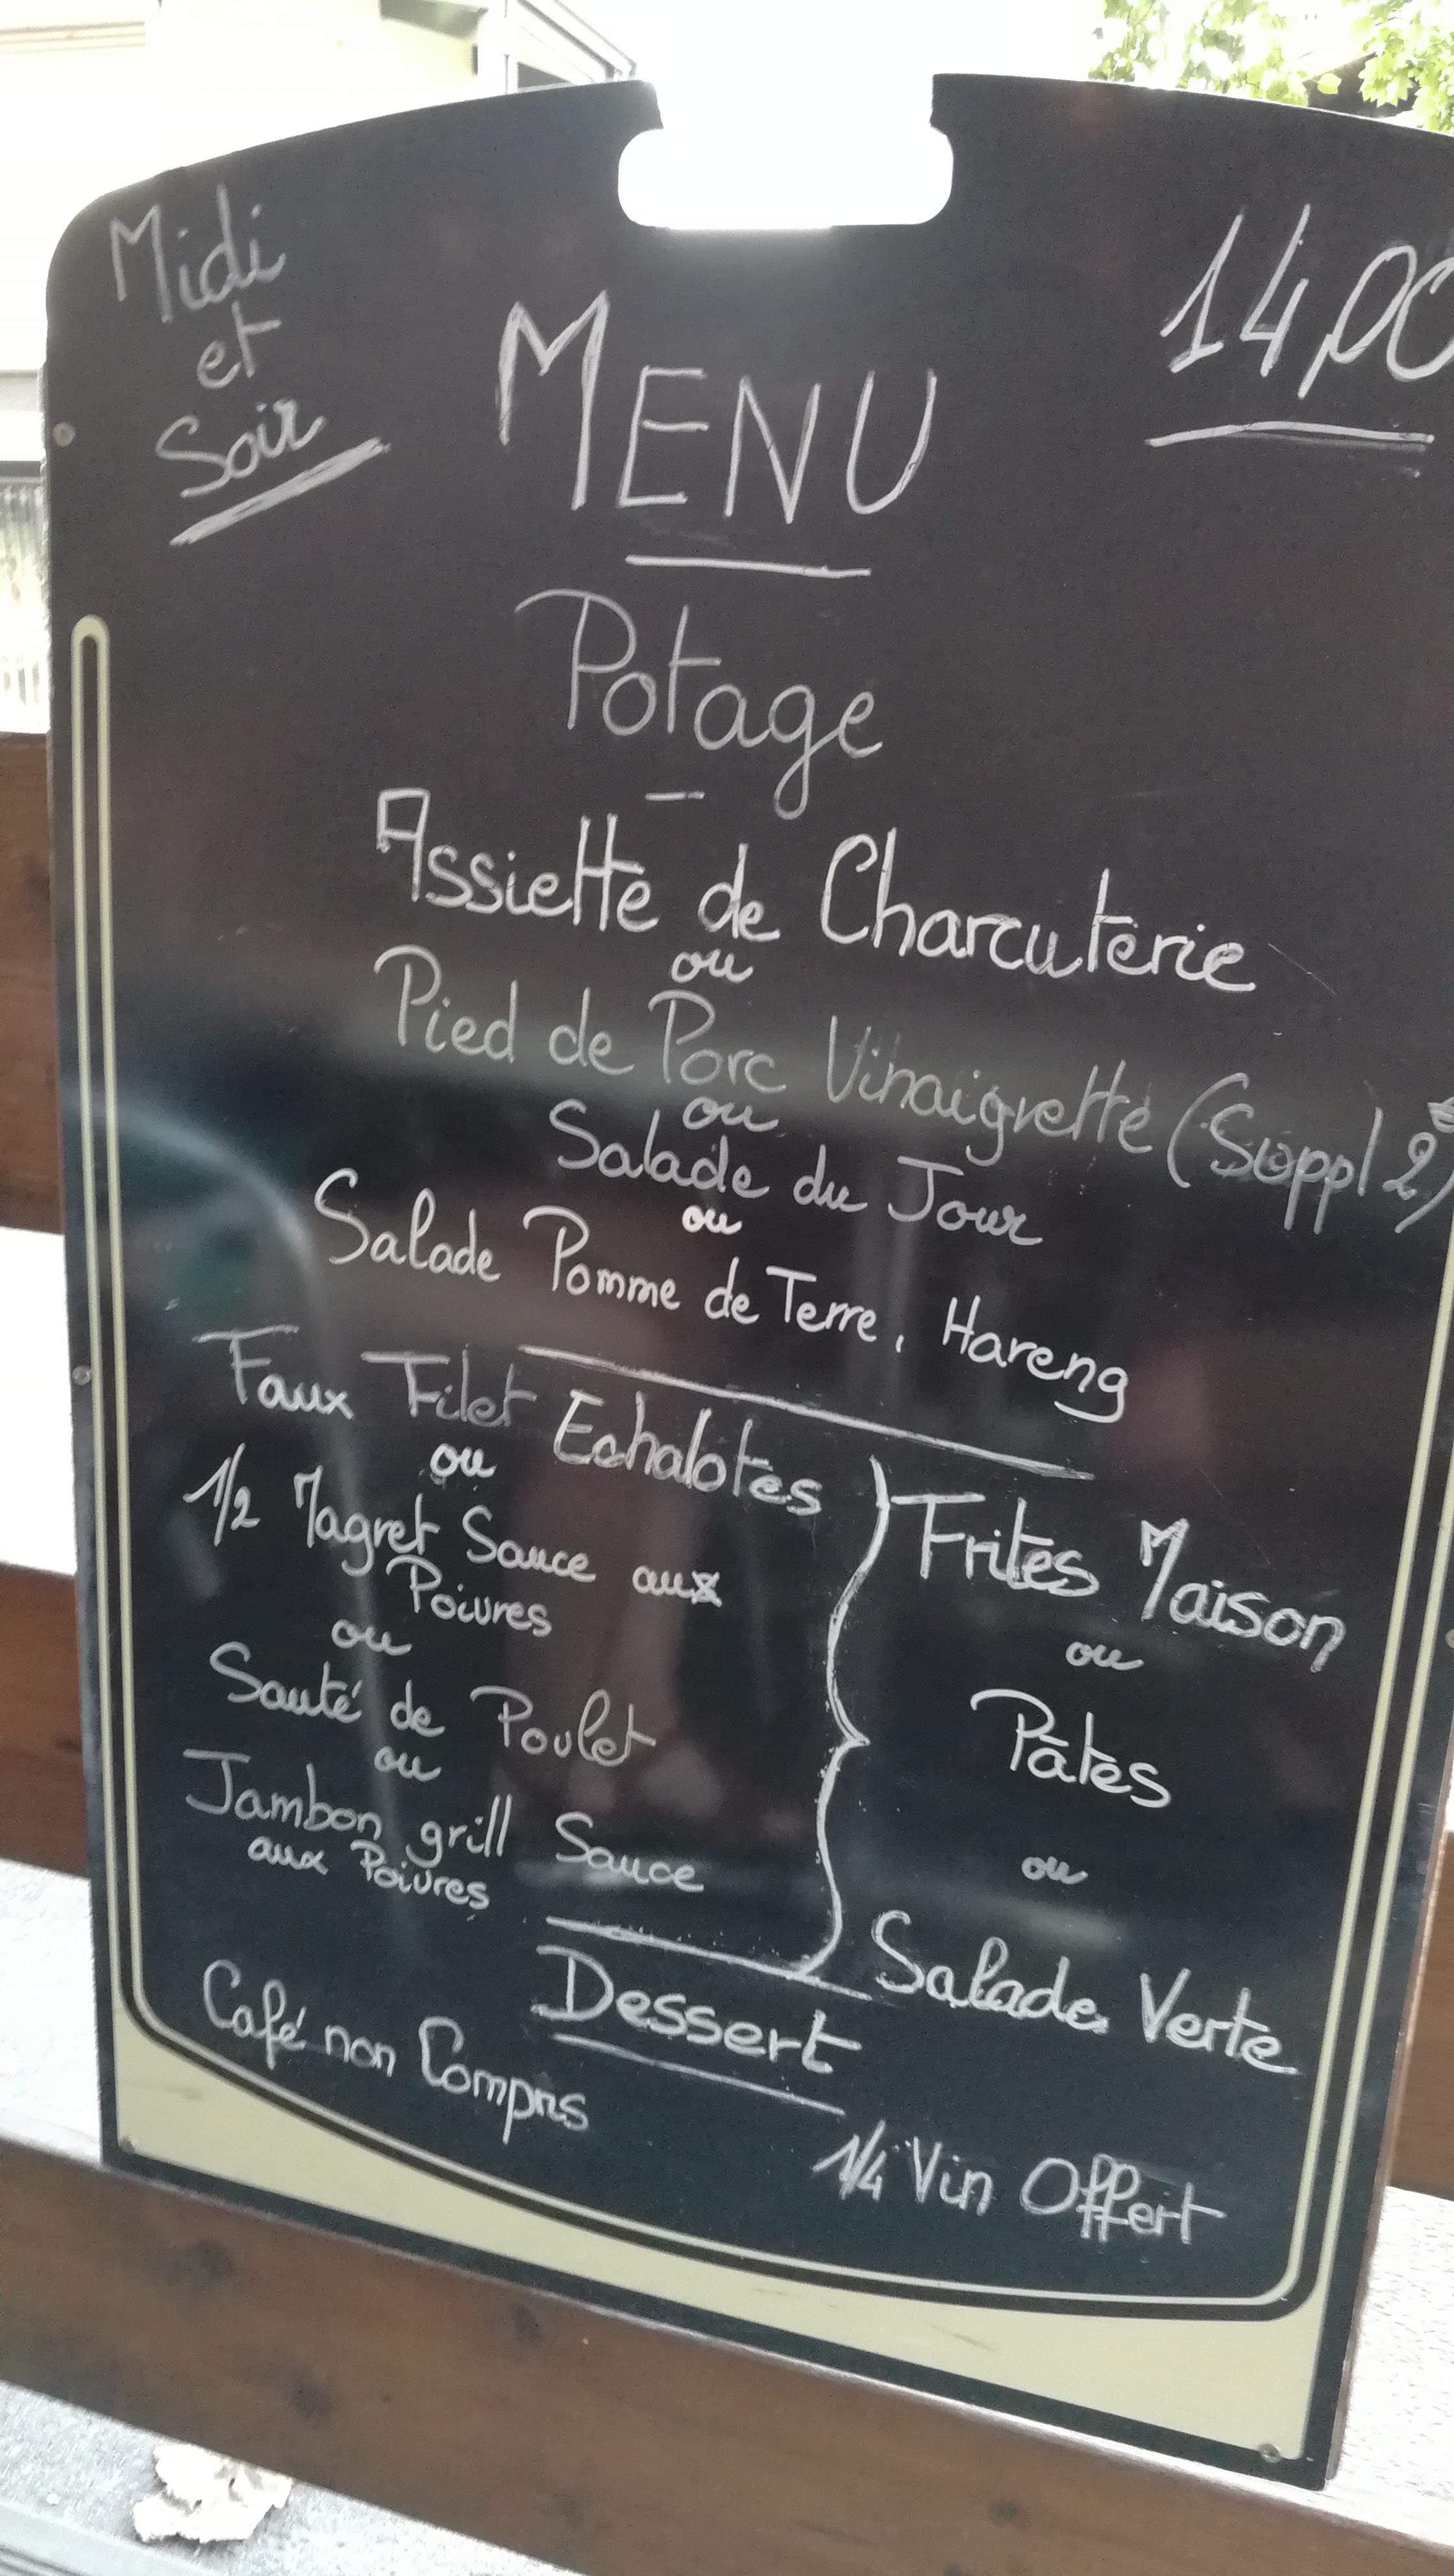 Midi
et
Soir
14,00
MENU
Potage
Assiette de Charcuterie
ou
Pied de Porc Vinaigrette (Suppl 2€)
ou
Salade du Jour
ou
Salade Pomme de Terre, Hareng
Faux Filet Echalotes
ou
1/2 Magret Sauce aux
Poivres
ou
Sauté de Poulet
ou
Jambon grill Sauce
aux Poivres
Frites Maison
ou
Pâtes
ou
Salade Verte
Dessert
Café non Compris
1/4 Vin Offert